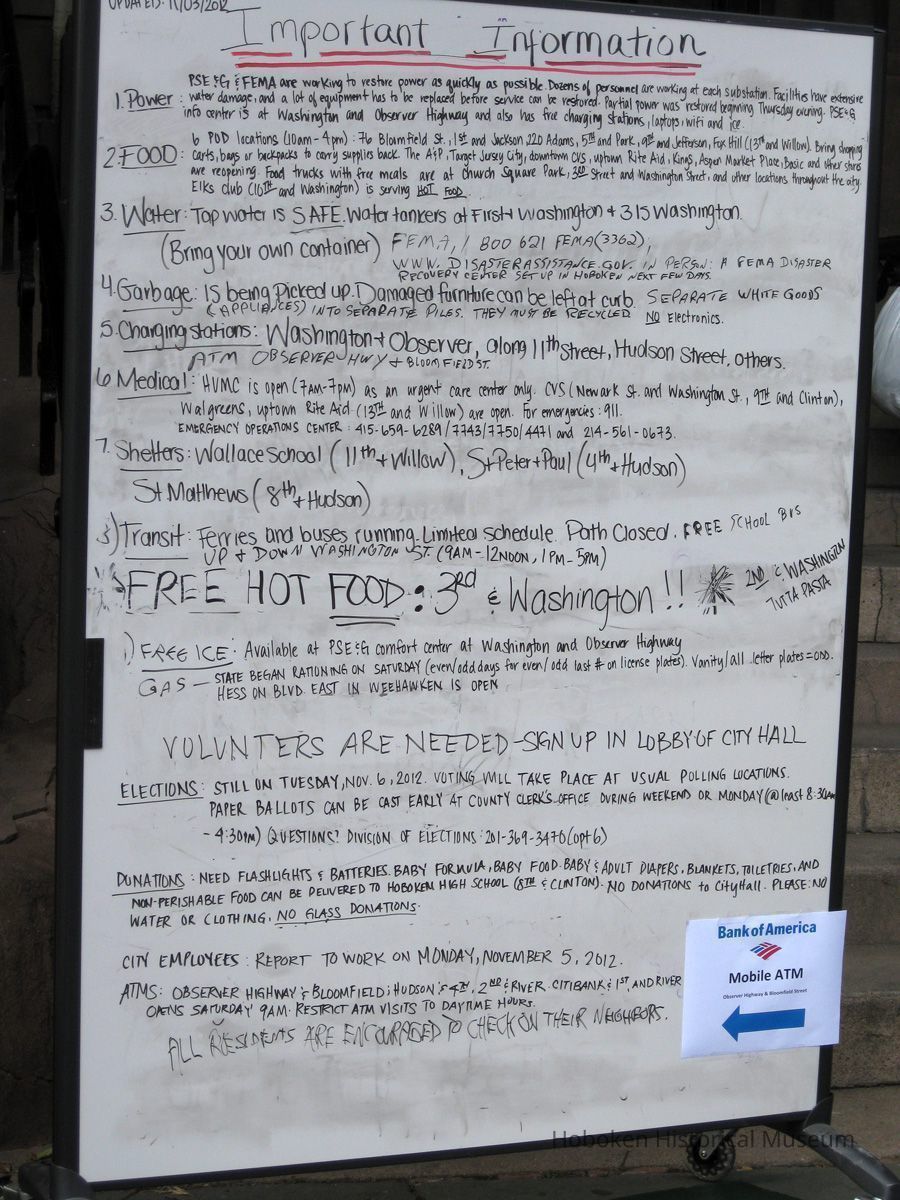 UPDATED: 11/03/2012
Important Information
PSE&G & FEMA are working to restore power as quickly as possible. Dozens of personnel are working at each substation. Facilities have extensive
1. Power: water damage, and a lot of equipment has to be replaced before service can be restored. Partial power was restored beginning Thursday evening. PSE&G
info center is at Washington and Observer Highway and also has free charging stations, laptops, wifi and ice.
6 POD locations (10am-4pm): 76 Bloomfield St., 1st and Jackson, 220 Adams, 5TH and Park, 9TH and Jefferson, Fox Hill (13TH and Willow). Bring shopping
2 FOOD: carts, bags or backpacks to carry supplies back. The A&P, Target Jersey City, downtown CVS, uptown Rite Aid, Kings, Aspen Market Place, Basic and other stores
are reopening. Food trucks with free meals are at Church Square Park, 3RD Street and Washington Street, and other locations throughout the city.
Elks club (10TH and Washington) is serving HOT FOOD.
3. Water: Tap water is SAFE. Water tankers at First + Washington + 315 Washington.
(Bring your own container) FEMA, 1 800 621 FEMA (3362),
WWW. DISASTERASSISTANCE.GOV. IN PERSON: A FEMA DISASTER
RECOVERY CENTER SET UP IN HOBOKEN NEXT FEW DAYS.
4. Garbage: Is being Picked up. Damaged furniture can be left at curb. SEPARATE WHITE GOODS
(APPLIANCES) INTO SEPARATE PILES. THEY MUST BE RECYCLED. NO Electronics.
5. Charging stations: Washington + Observer, along 11th Street, Hudson Street, others.
ATM OBSERVER HWY + BLOOMFIELD ST.
6 Medical: HUMC is open (7AM-7PM) as an urgent care center only. CVS (Newark St. and Washington St., 9TH and Clinton),
Walgreens, uptown Rite Aid (13TH and Willow) are open. For emergencies: 911.
EMERGENCY OPERATIONS CENTER: 415-659-6289/7743/7750/4471 and 214-561-0673.
7. Shelters: Wallace School (11th + Willow), St Peter + Paul (4th + Hudson)
St Matthews (8th + Hudson)
8) Transit: Ferries and buses running. Limited schedule. Path Closed. FREE SCHOOL BUS
UP & DOWN WASHINGTON ST. (9AM-12NOON, 1PM-5PM)
FREE HOT FOOD: 3rd & Washington!! 2ND & WASHINGTON
TUTTA PASTA
) FREE ICE: Available at PSE&G comfort center at Washington and Observer Highway
GAS — STATE BEGAN RATIONING ON SATURDAY (even/odd days for even/odd last # on license plates). Vanity/all letter plates = ODD.
HESS ON BLVD. EAST IN WEEHAWKEN IS OPEN
VOLUNTERS ARE NEEDED - SIGN UP IN LOBBY OF CITY HALL
ELECTIONS: STILL ON TUESDAY, NOV. 6, 2012. VOTING WILL TAKE PLACE AT USUAL POLLING LOCATIONS.
PAPER BALLOTS CAN BE CAST EARLY AT COUNTY CLERK'S OFFICE DURING WEEKEND OR MONDAY (@ least 8:30AM
- 4:30PM) QUESTIONS? DIVISION OF ELECTIONS: 201-369-3470 (opt 6)
DONATIONS: NEED FLASHLIGHTS & BATTERIES. BABY FORMULA, BABY FOOD. BABY & ADULT DIAPERS, BLANKETS, TOILETRIES, AND
NON-PERISHABLE FOOD CAN BE DELIVERED TO HOBOKEN HIGH SCHOOL (8TH & CLINTON). NO DONATIONS to City Hall. PLEASE: NO
WATER OR CLOTHING. NO GLASS DONATIONS.
CITY EMPLOYEES: REPORT TO WORK ON MONDAY, NOVEMBER 5, 2012.
ATMS: OBSERVER HIGHWAY & BLOOMFIELD; HUDSON & 4TH, 2ND & RIVER. CITIBANK & 1ST, AND RIVER
OPENS SATURDAY 9AM. RESTRICT ATM VISITS TO DAYTIME HOURS.
ALL RESIDENTS ARE ENCOURAGED TO CHECK ON THEIR NEIGHBORS.
Bank of America
Mobile ATM
Observer Highway & Bloomfield Street
Hoboken Historical Museum